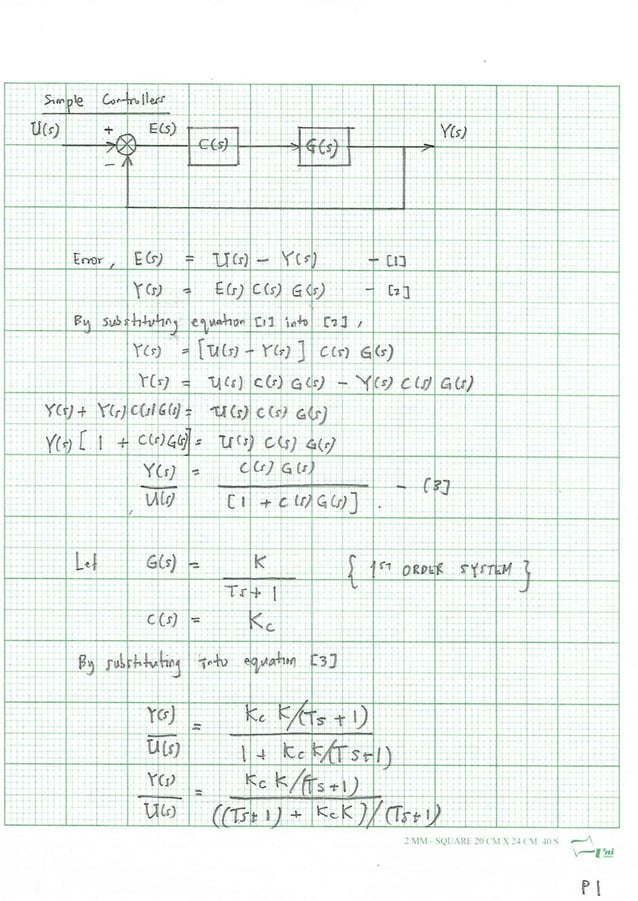 Simple Controllers
U(s) + E(s) C(s) G(s) Y(s)
−
Error, E(s) = U(s) − Y(s) − [1]
Y(s) = E(s) C(s) G(s) − [2]
By substituting equation [1] into [2],
Y(s) = [U(s) − Y(s)] C(s) G(s)
Y(s) = U(s) C(s) G(s) − Y(s) C(s) G(s)
Y(s) + Y(s) C(s) G(s) = U(s) C(s) G(s)
Y(s) [1 + C(s) G(s)] = U(s) C(s) G(s)
Y(s) = C(s) G(s)
U(s) [1 + C(s) G(s)] . − [3]
Let G(s) = K { 1ST ORDER SYSTEM }
Ts + 1
C(s) = Kc
By substituting into equation [3]
Y(s) = Kc K/(Ts + 1)
U(s) 1 + Kc K/(Ts+1)
Y(s) = Kc K/(Ts+1)
U(s) ((Ts+1) + KcK)/(Ts+1)
2 MM - SQUARE 20 CM X 24 CM 40 S
P1